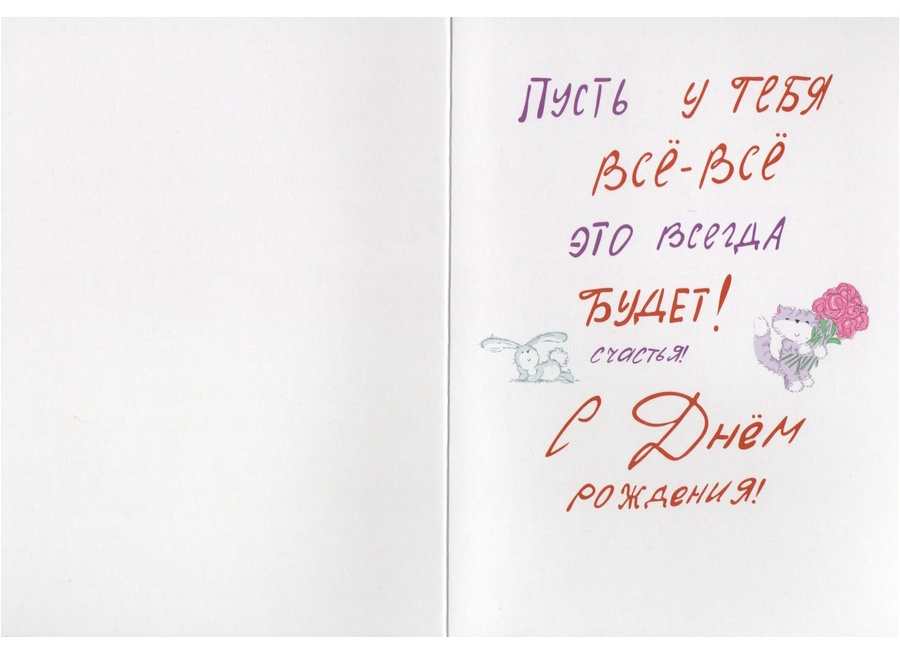 Пусть у тебя
всё-всё
это всегда
будет!
счастья!
С Днём
рождения!